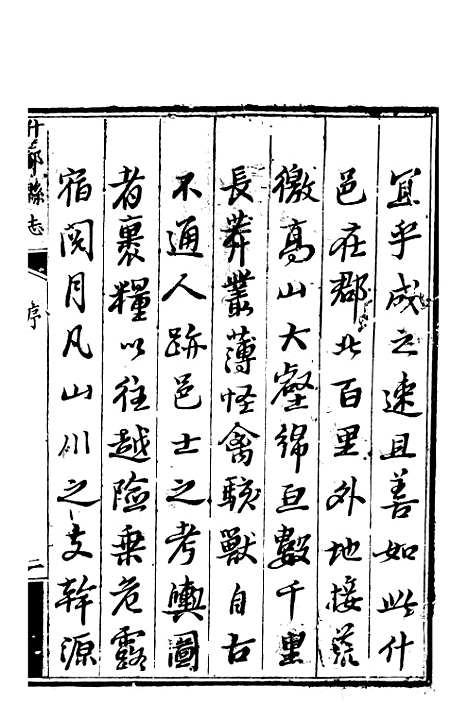 宜乎成之速且善如此什
邑在郡北百里外地接荒
徼高山大壑綿亘數千里
長莽叢薄怪禽駭獸自古
不通人跡邑士之考輿圖
者裹糧以往越險乘危露
宿閱月凡山川之支幹源
什邡縣志
序
二